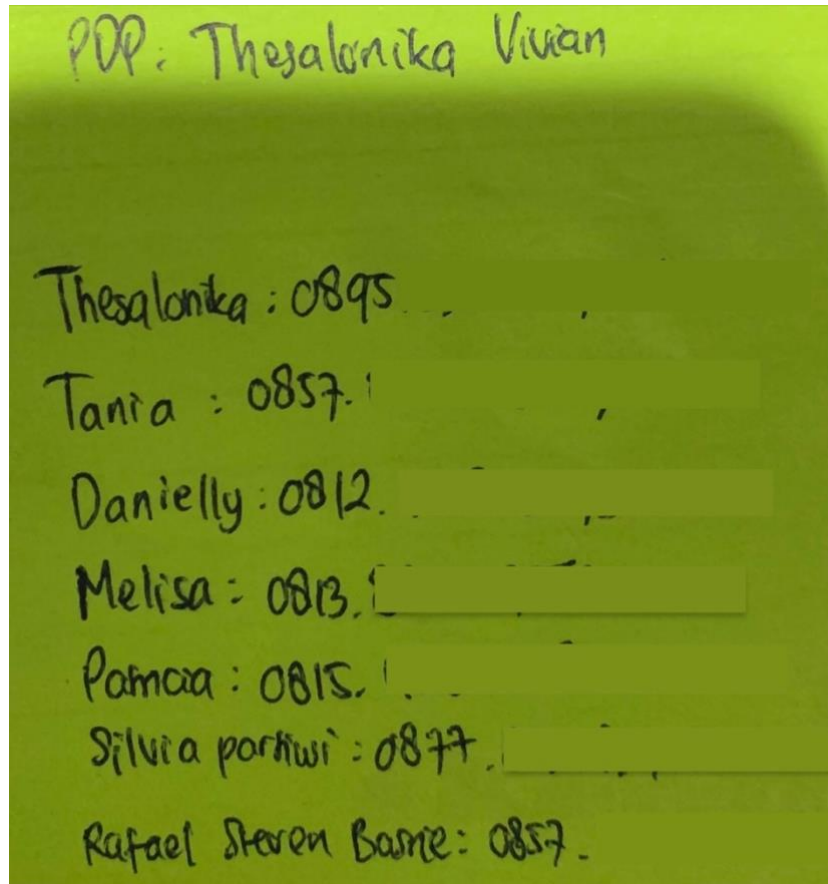 PDP: Thesalonika Vivian
Thesalonika : 0895
Tania : 0857.
Danielly : 0812.
Melisa : 0813.
: 0815.
Silvia : 0877.
Rafael Steven : 0857.